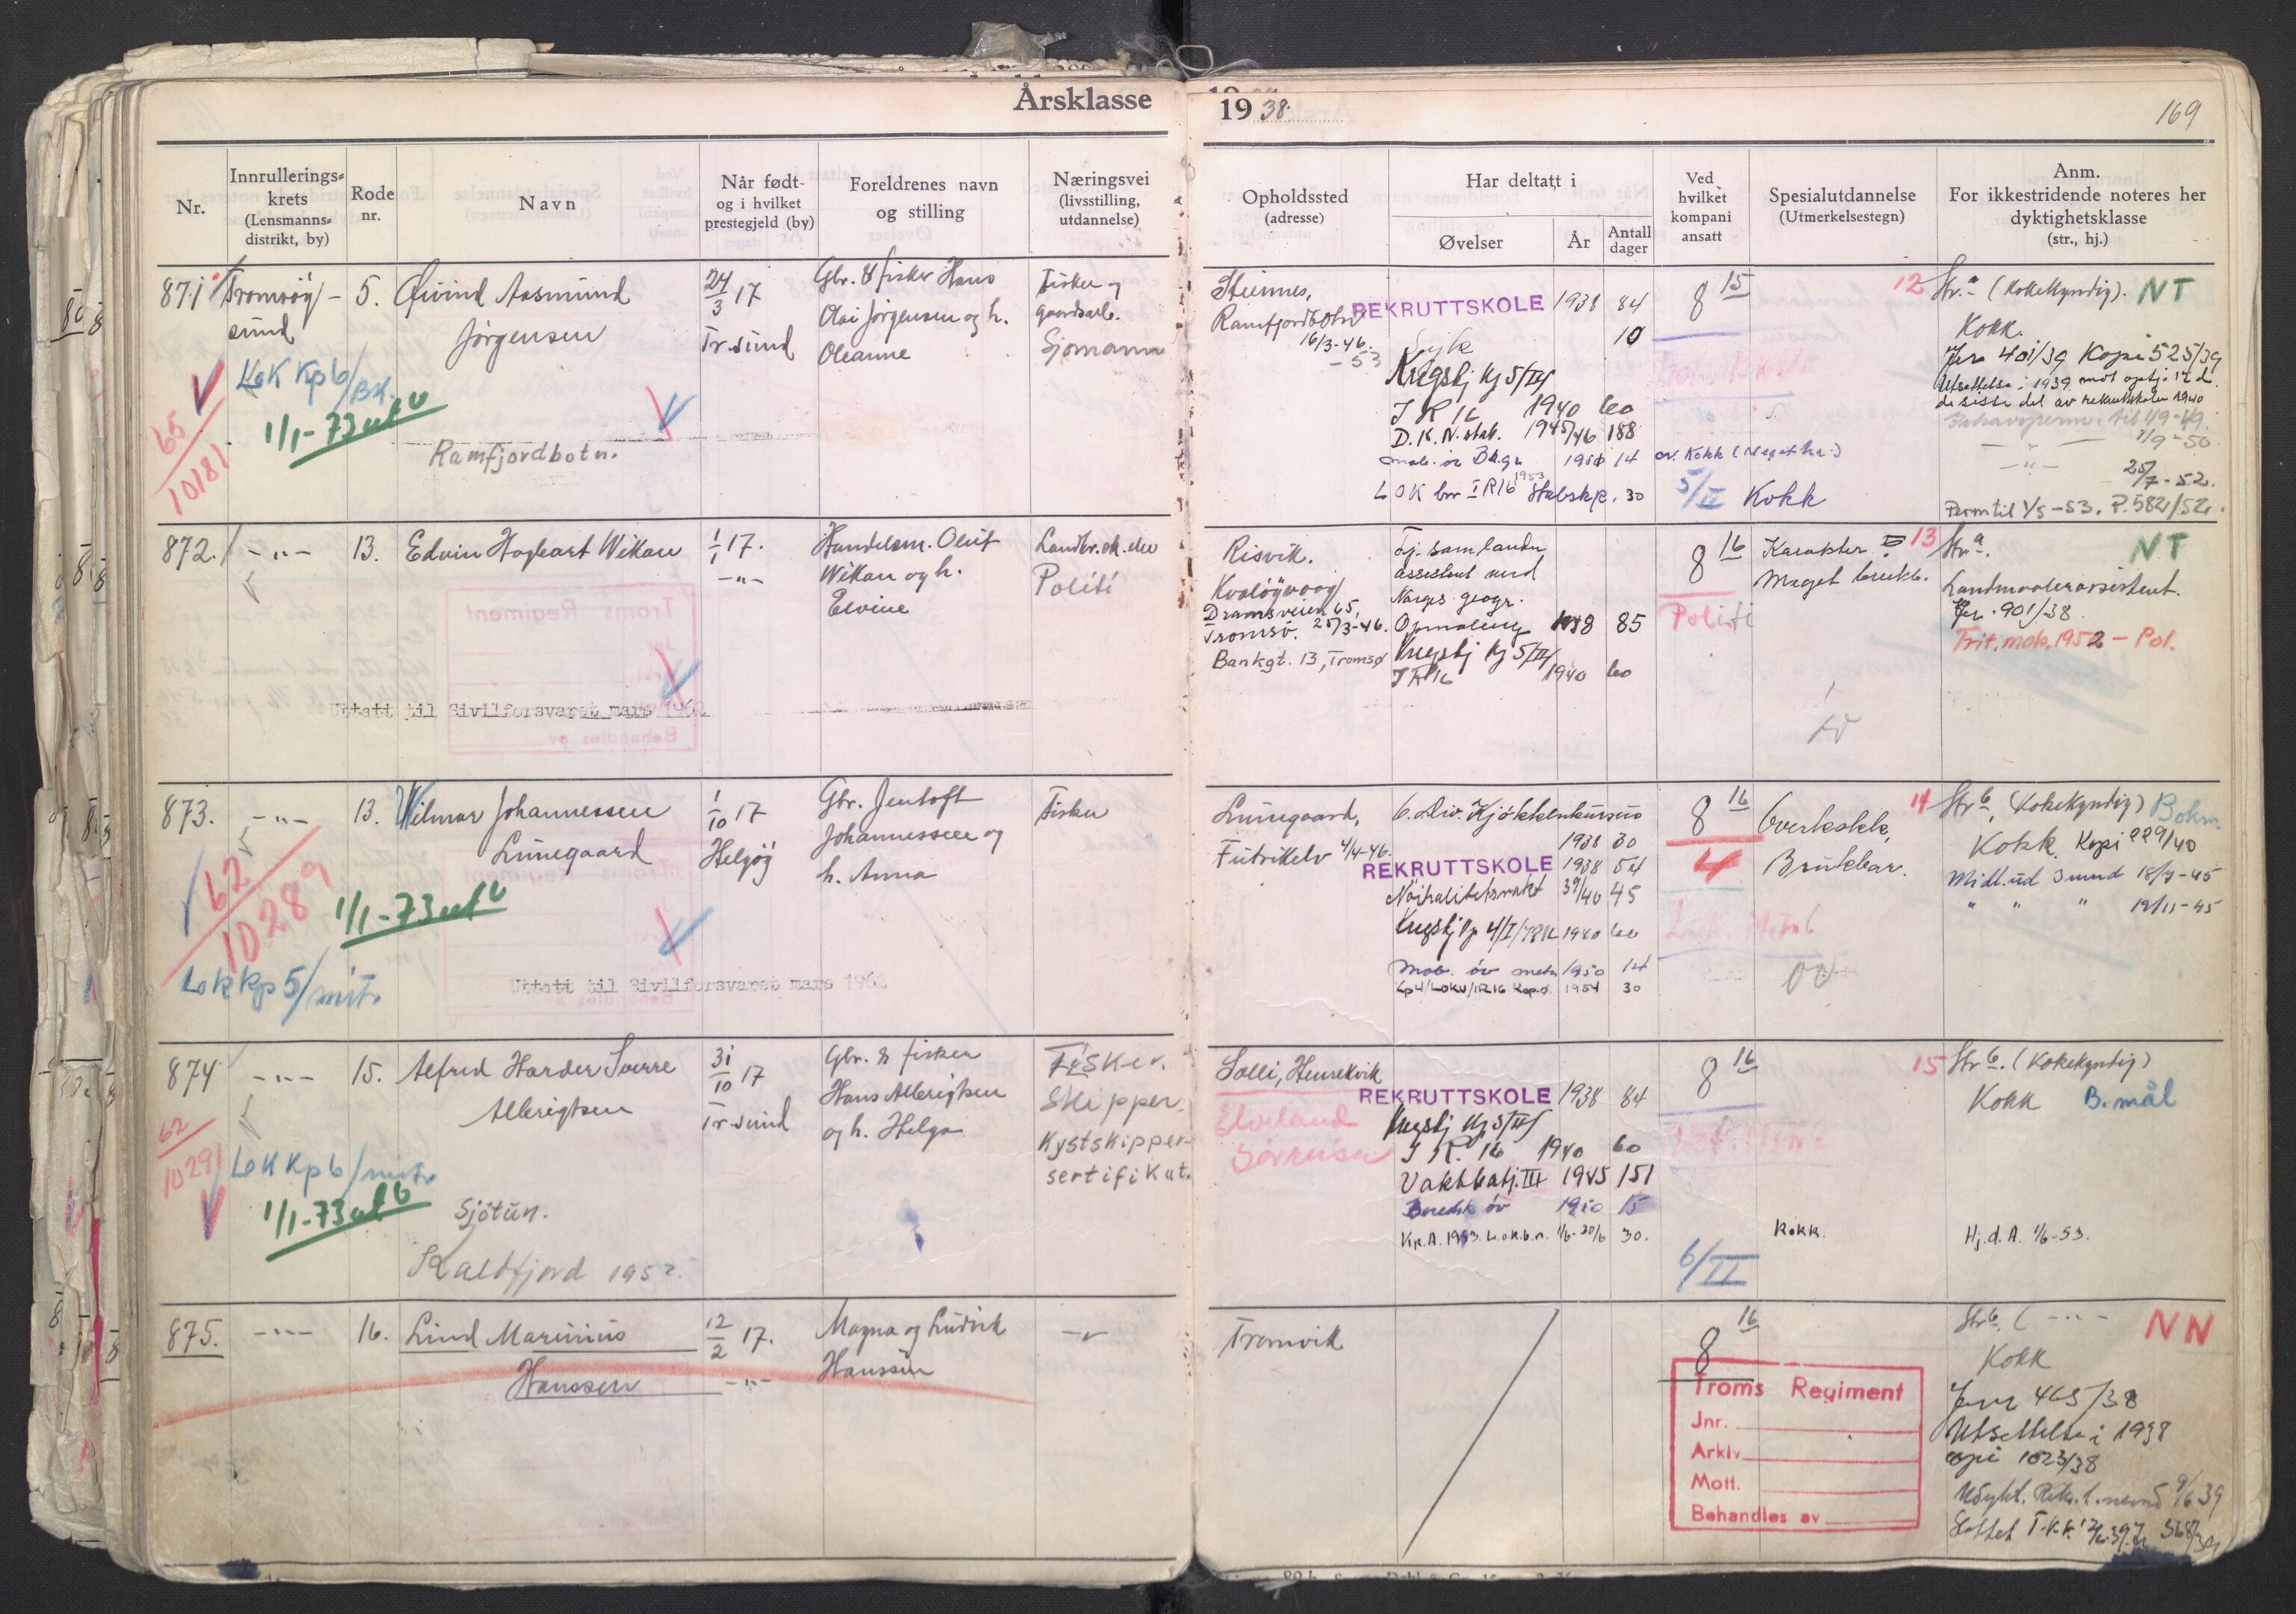 Årsklasse 1938. 169
Nr.
Innrullerings-
krets
(Lensmanns-
distrikt, by)
Rode
nr.
Navn
Når født-
og i hvilket
prestegjeld (by)
Foreldrenes navn
og stilling
Næringsvei
(livsstilling,
utdannelse)
Opholdssted
(adresse)
Har deltatt i
Øvelser
År
Antall
dager
Ved
hvilket
kompani
ansatt
Spesialutdannelse
(Utmerkelsestegn)
Anm.
For ikkestridende noteres her
dyktighetsklasse
(str., hj.)
871 Tromsøy-
sund
5.
Øivind Aasmund
Jørgensen
24/3 17
Tr.sund
Gbr. & fisker Hans
Olai Jørgensen og h.
Oleanne
Fisker og
gaardsarb.
Sjømann
LoK Kp 6/BK.
1/1-73 utl
65
10181
Ramfjordbotn.
Steinnes,
Ramfjordbotn
16/3-46.
-53
REKRUTTSKOLE 1938 84
10
Krigsbj Kj 5/III
I R 16 1940 60
D.K.N. stab. 1945/46 188
1950 14
LOK bn IR16 1953 Stabskp. 30
8 15
5/II Kokk
12 Str. a (Kokekyndig). NT
Kokk.
Jnr 401/39 Kopi 525/39
Utsettelse i 1939 mot
de siste del av rekruttskolen 1940
7/9-50.
25/7-52.
Perm til 1/5-53. P.582/52.
872. -"- 13. Edvin Hagbart Wikan
1/1 17.
-"-
Handelsm. Oluf
Wikan og h.
Elvine
Politi
Uttatt til Sivilforsvaret mars 1962
Risvik.
Kvaløyvaag
Dramsveien 65,
Tromsö. 25/3-46.
Bankgt. 13, Tromsø
Tj. som landm
assistent med
Norges geogr.
Opmaaling 1938 85
Krigsbj Kj 5/III
IR 16 1940 60
8 16
Politi
Karakter
Meget brukb.
13 Str. a. NT
Landmaalerassistent.
Jnr. 901/38.
Frit. mob. 1952 - Pol.
873. -"- 13. Wilmar Johannessen
Lunegaard
1/10 17
Helgøy
Gbr. Jentoft
Johannessen og
h. Anna
Fisker
62
10289
1/1-73 utl
Lok kp 5/mitr.
Uttatt til Sivilforsvaret mars 1962
Lunegaard,
Futrikelv 4/4-46.
6. Div. Kjøkkenkursus
1938 30
REKRUTTSKOLE 1938 54
Nøitralitetsvakt 39/40 45
Krigsbj Kp 4/I/IR16 1940 60
Mob. öv 1950 14
Kp 4/LOKV/IR16 Rep.ö. 1954 30
8 16
4
Overkokk,
Brukbar.
14 Str. b, (Kokekyndig) Bokm.
Kokk. Kopi 229/40
Midl. ud 3 mnd 18/7-45
" " " 19/11-45
874 -"- 15. Alfred Harder Sverre
Albrigtsen
31/10 17
Tr.sund
Gbr. & fisker
Hans Albrigtsen
og h. Helga
Fisker.
Skipper.
Kystskipper-
sertifikat.
62
10291
LoK Kp 6/mitr.
1/1-73 utl
Sjötun.
Kaldfjord 1952.
Solli, Henrikvik
Elveland
Sörreisa
REKRUTTSKOLE 1938 84
Krigsbj Kj 5/III
I R. 16 1940 60
Vaktbatj. III 1945 151
öv 1950 15
Kp.A. 1953. L.o.k.b.n. 1/6-30/6 30.
8 16
6/II
Kokk.
15 Str. b. (Kokekyndig)
Kokk B.mål
Hj.d.A. 1/6-53.
875. -"- 16. Lind Marinius
Hanssen
12/2 17.
-"-
Magna og Ludvik
Hanssen
-"-
Tromvik
8 16
Troms Regiment
Jnr.
Arkiv
Mott.
Behandles av
Str. b. ( -"- NN
Kokk
Jnr 465/38
Utsettelse i 1938
Kopi 1023/38
Udykt. 9/6 39
568/39